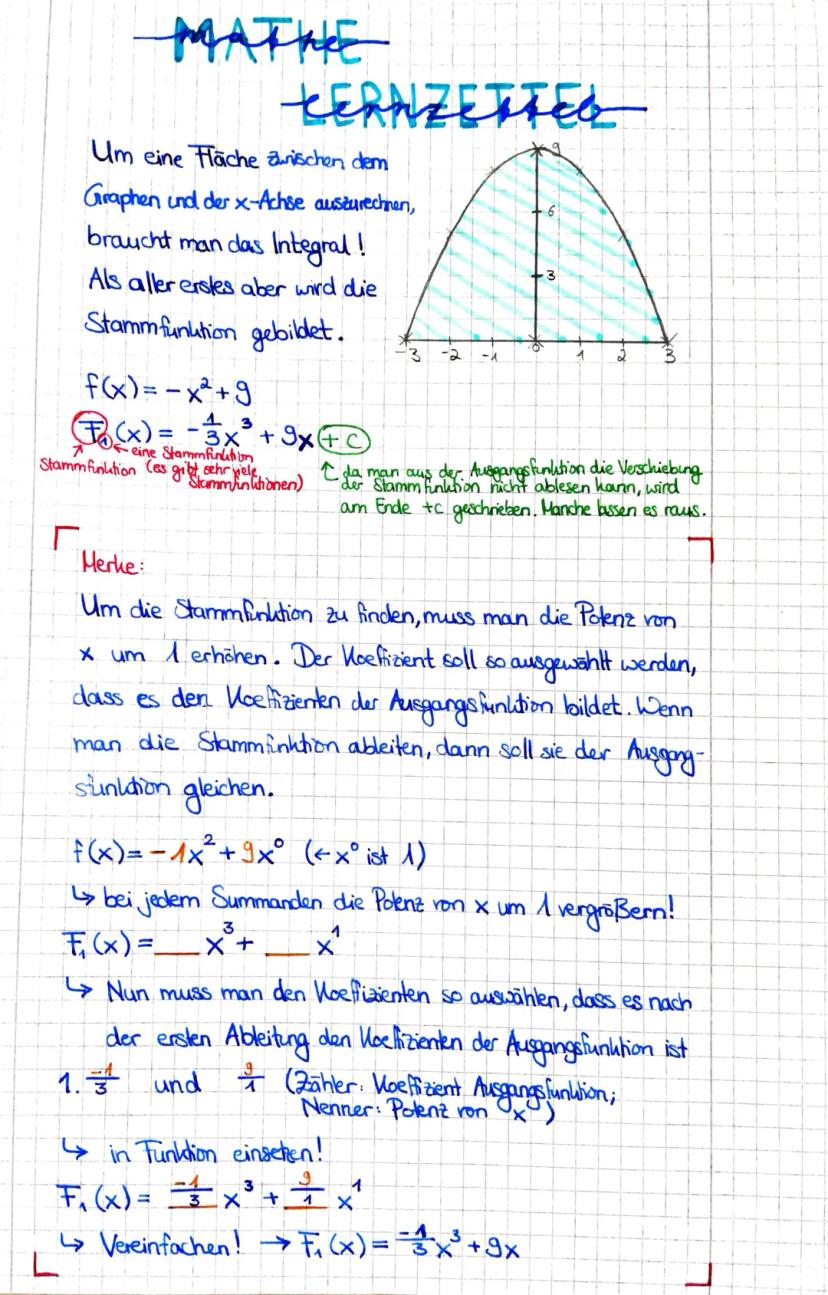 MATHE
LERNZETTEL
Um eine Fläche zwischen dem
Graphen und der x-Achse auszurechnen,
braucht man das Integral!
Als aller erstes aber wird die
Stammfunktion gebildet.
9
6
3
-3 -2 -1 0 1 2 3
f(x) = -x² + 9
F₁(x) = -1/3 x³ + 9x + c
← eine Stammfunktion
Stammfunktion (es gibt sehr viele
Stammfunktionen)
↑ da man aus der Ausgangsfunktion die Verschiebung
der Stammfunktion nicht ablesen kann, wird
am Ende +c geschrieben. Manche lassen es raus.
Merke:
Um die Stammfunktion zu finden, muss man die Potenz von
x um 1 erhöhen. Der Koeffizient soll so ausgewählt werden,
dass es den Koeffizienten der Ausgangsfunktion bildet. Wenn
man die Stammfunktion ableiten, dann soll sie der Ausgang-
sfunktion gleichen.
f(x) = -1x² + 9x⁰ (← x⁰ ist 1)
↳ bei jedem Summanden die Potenz von x um 1 vergrößern!
F₁(x) = __ x³ + __ x¹
↳ Nun muss man den Koeffizienten so auswählen, dass es nach
der ersten Ableitung den Koeffizienten der Ausgangsfunktion ist
1. -1/3 und 9/1 (Zähler: Koeffizient Ausgangsfunktion;
Nenner: Potenz von x)
↳ in Funktion einsetzen!
F₁(x) = -1/3 x³ + 9/1 x¹
↳ Vereinfachen! → F₁(x) = -1/3 x³ + 9x